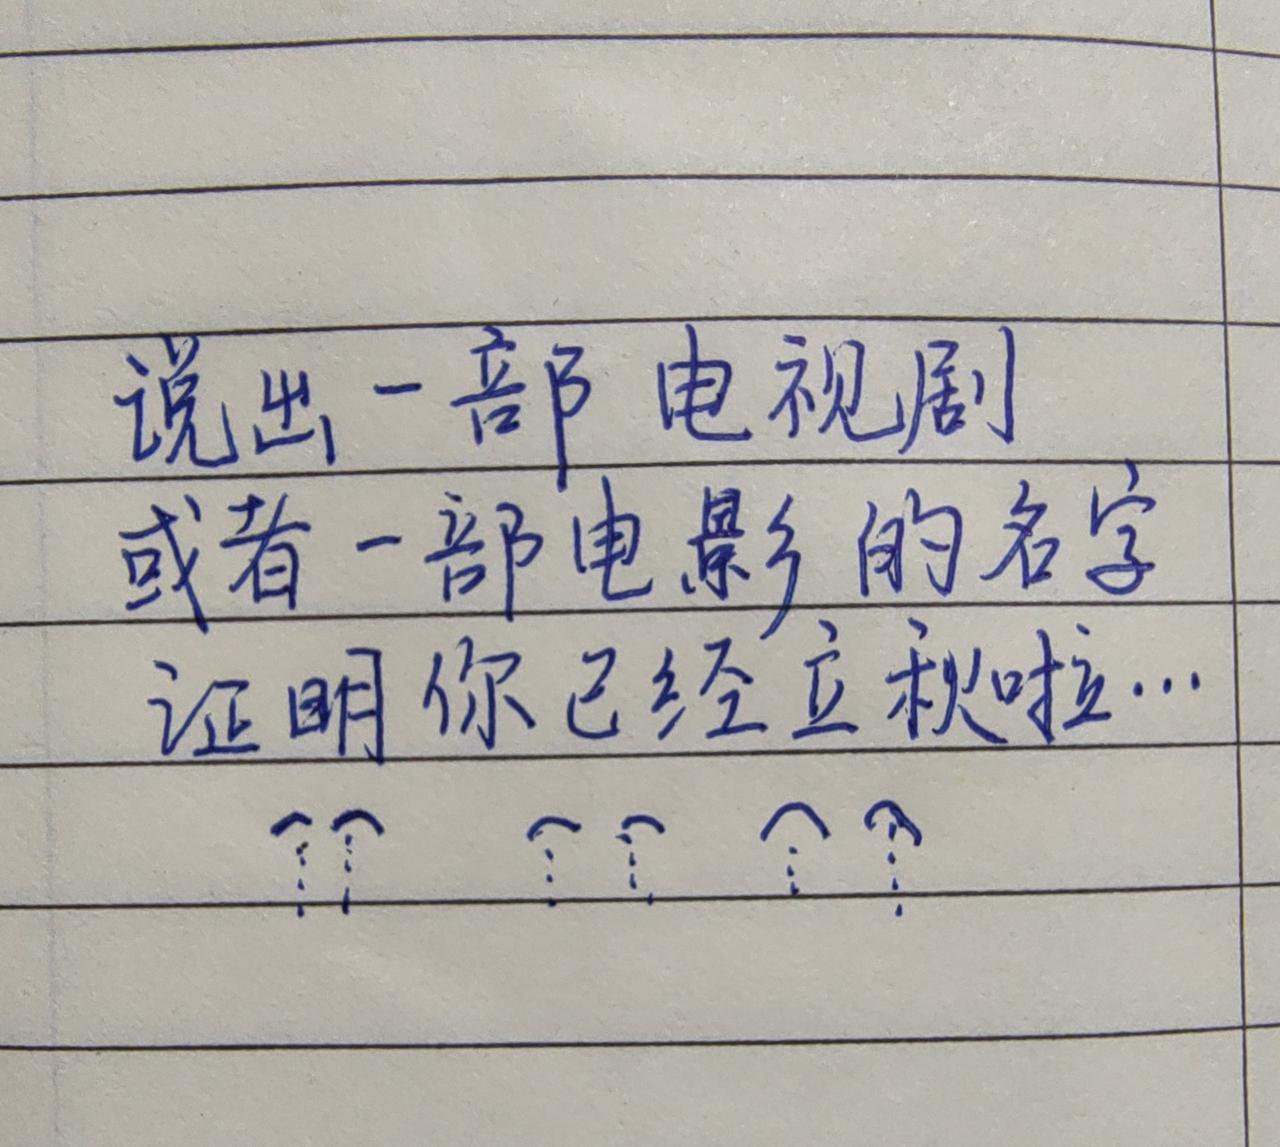 说出一部电视剧
或者一部电影的名字
证明你已经立秋啦…